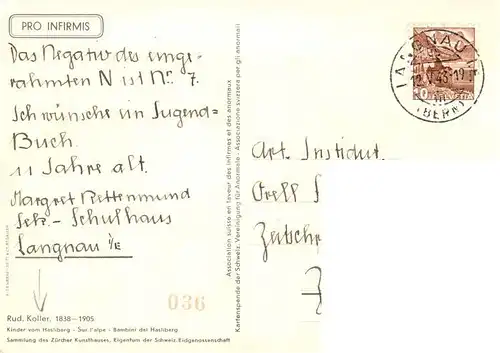 PRO INFIRMIS
Das Negativ des einge-
rahmten N ist Nr. 7.
Ich wünsche ein Jugend-
Buch.
11 Jahre alt.
Margret Rettenmund
Sek.- Schulhaus
Langnau i/E
Rud. Koller, 1838—1905
Kinder vom Hasliberg - Sur l'alpe - Bambini del Hasliberg
Sammlung des Zürcher Kunsthauses, Eigentum der Schweiz. Eidgenossenschaft
036
Association suisse en faveur des infirmes et des anormaux
Kartenspende der Schweiz. Vereinigung für Anormale - Associazione svizzera per gli anormali
LANGNAU
(BERN)
HELVETIA
Art. Institut
Orell
Zürich